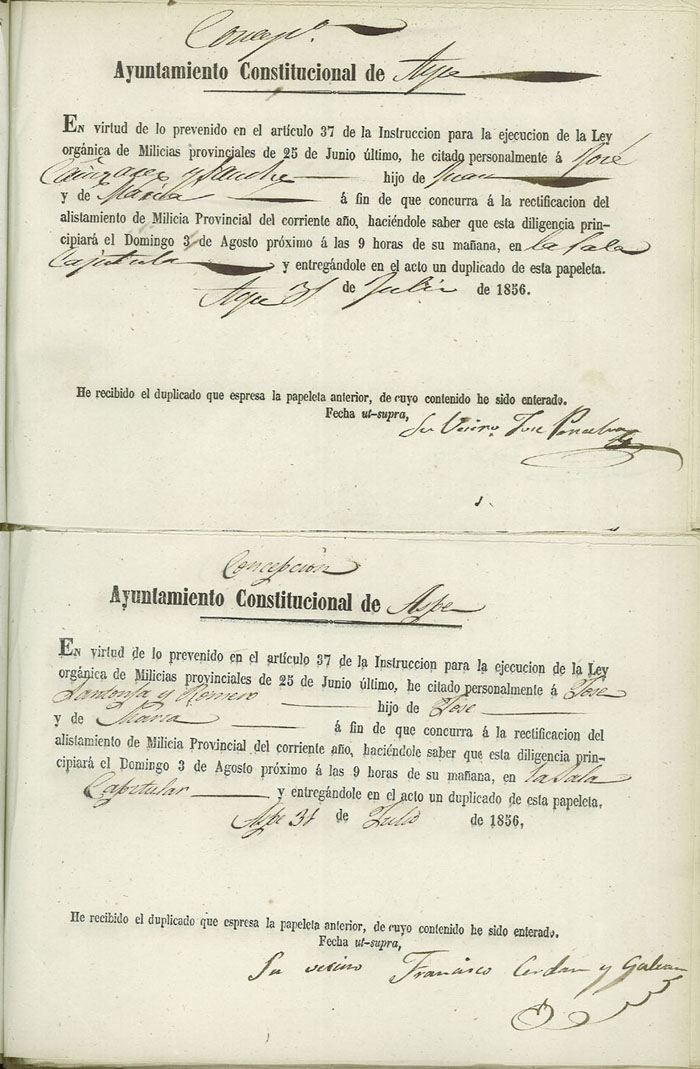 Concepn.
Ayuntamiento Constitucional de Aspe
EN virtud de lo prevenido en el artículo 37 de la Instruccion para la ejecucion de la Ley
orgánica de Milicias provinciales de 25 de Junio último, he citado personalmente á José
Cañizares y Sanchez hijo de Juan
y de Maria á fin de que concurra á la rectificacion del
alistamiento de Milicia Provincial del corriente año, haciéndole saber que esta diligencia prin-
cipiará el Domingo 3 de Agosto próximo á las 9 horas de su mañana, en la Sala
Capitula y entregándole en el acto un duplicado de esta papeleta.
Aspe 31 de Julio de 1856.
He recibido el duplicado que espresa la papeleta anterior, de cuyo contenido he sido enterado.
Fecha ut-supra,
Su Vecino Jose
Concepcion
Ayuntamiento Constitucional de Aspe
EN virtud de lo prevenido en el artículo 37 de la Instruccion para la ejecucion de la Ley
orgánica de Milicias provinciales de 25 de Junio último, he citado personalmente á Jose
Santonja y Romero hijo de Jose
y de Maria á fin de que concurra á la rectificacion del
alistamiento de Milicia Provincial del corriente año, haciéndole saber que esta diligencia prin-
cipiará el Domingo 3 de Agosto próximo á las 9 horas de su mañana, en la Sala
Capitular y entregándole en el acto un duplicado de esta papeleta.
Aspe 31 de Julio de 1856,
He recibido el duplicado que espresa la papeleta anterior, de cuyo contenido he sido enterado.
Fecha ut-supra,
Su vecino Francisco Cerdan y Galvan